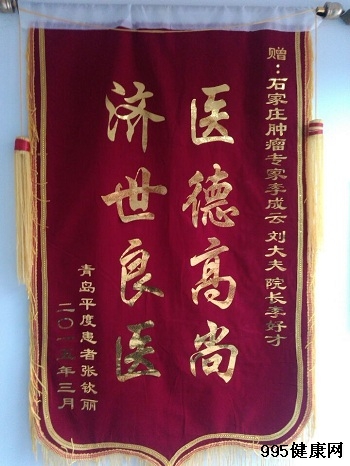 赠：石家庄肿瘤专家李成云 刘大夫 院长李好才
医德高尚
济世良医
青岛平度患者张钦丽
二〇一五年三月
995健康网